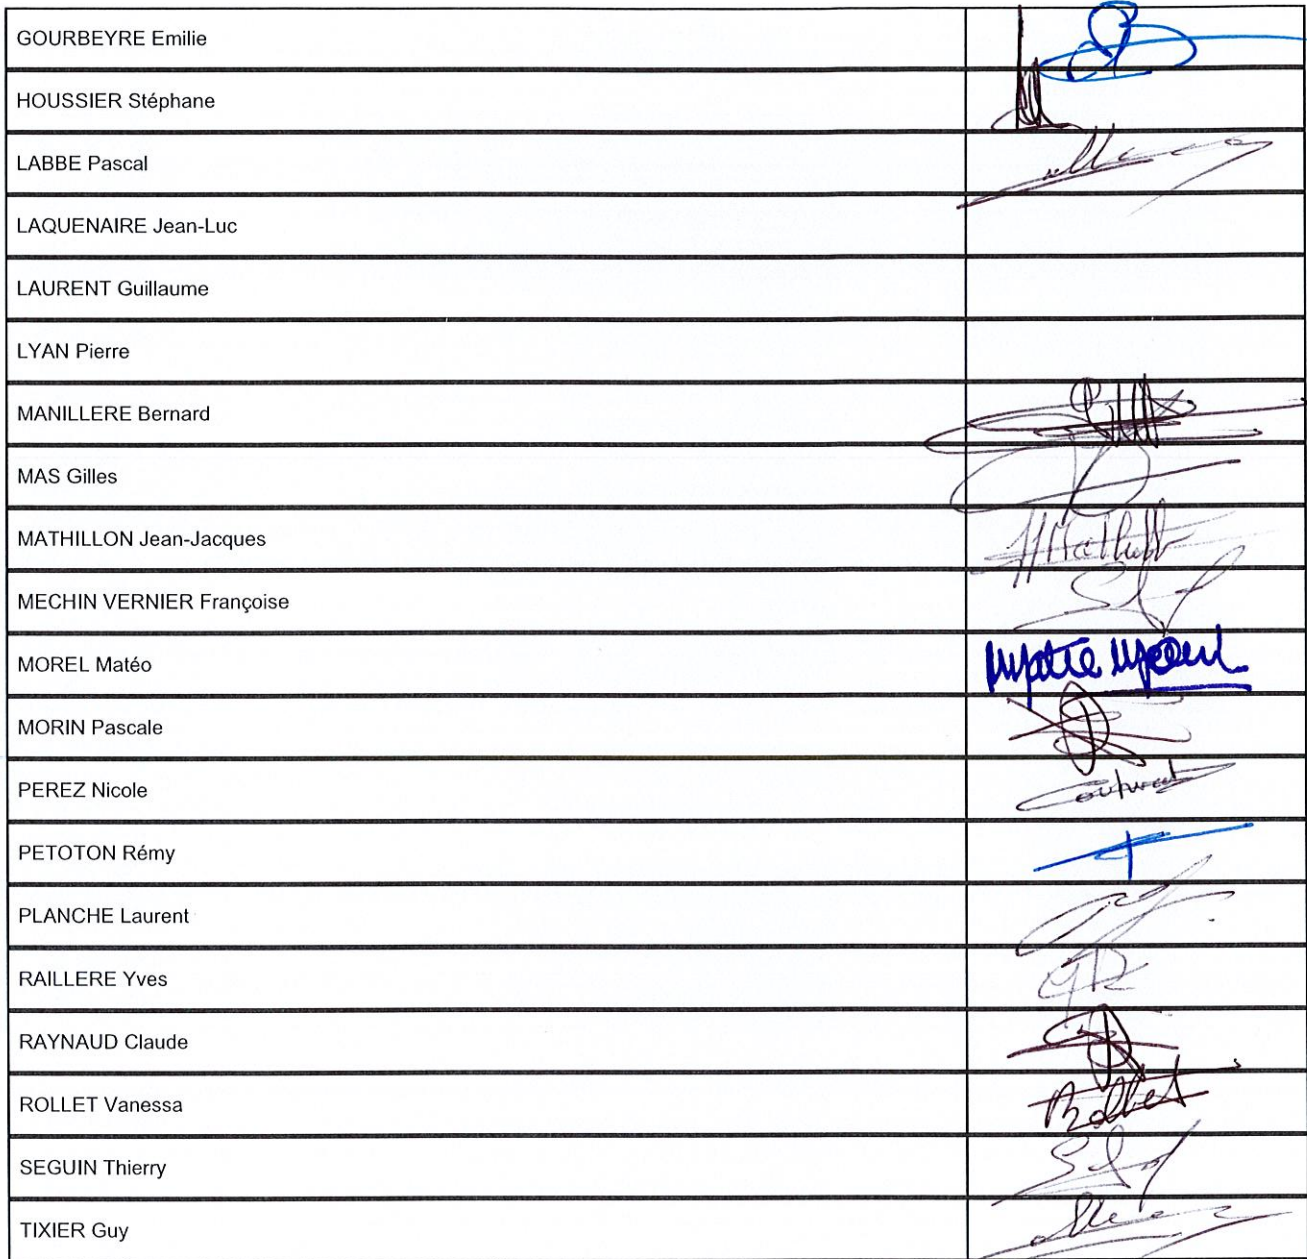 GOURBEYRE Emilie
HOUSSIER Stéphane
LABBE Pascal
LAQUENAIRE Jean-Luc
LAURENT Guillaume
LYAN Pierre
MANILLERE Bernard
MAS Gilles
MATHILLON Jean-Jacques
MECHIN VERNIER Françoise
MOREL Matéo
MORIN Pascale
PEREZ Nicole
PETOTON Rémy
PLANCHE Laurent
RAILLERE Yves
RAYNAUD Claude
ROLLET Vanessa Rollet
SEGUIN Thierry
TIXIER Guy